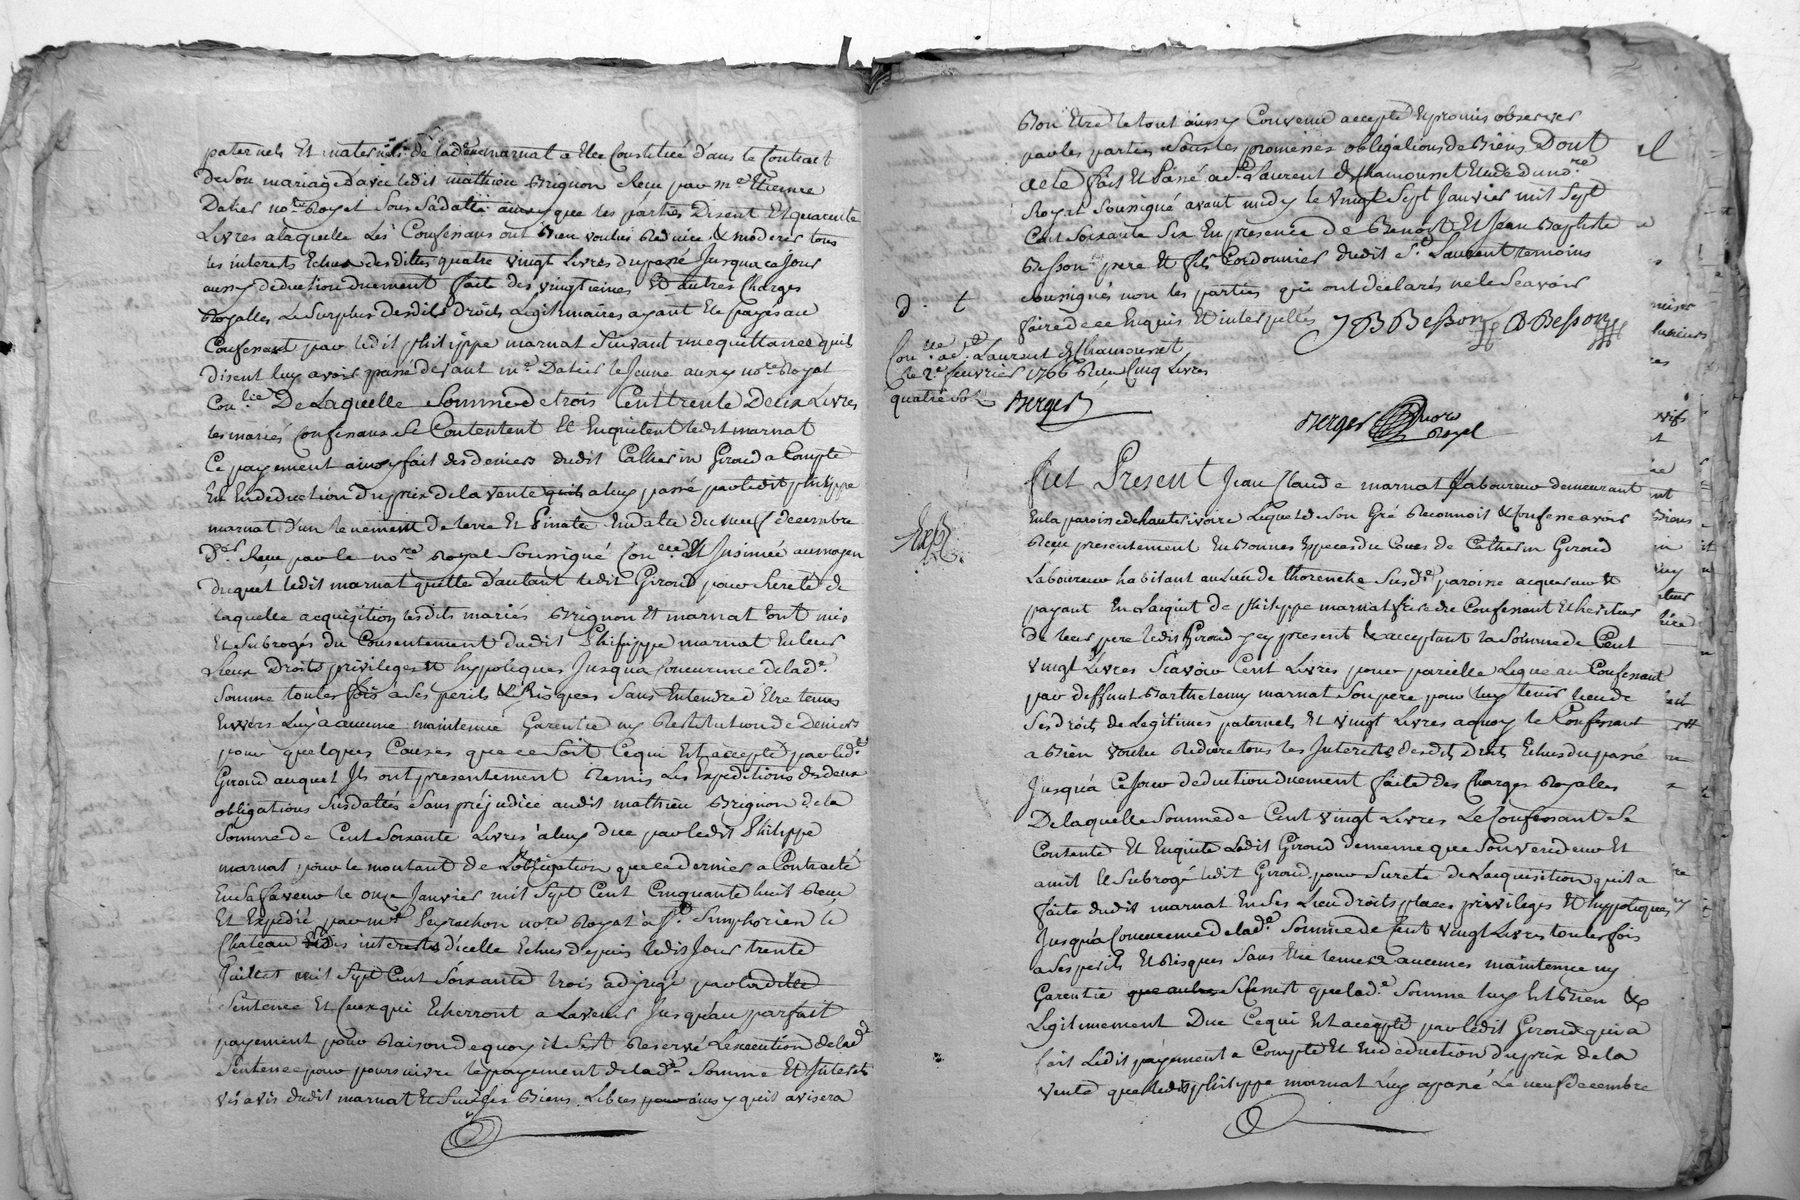 paternels Et maternels de lade marnat a Elle Constitüé dans le Contract
de Son mariage d'avec ledit mathieu Brignon Reçu par me Etienne
Datier nore Royal Sous Sa datte ainsy que les parties Disent Et quarente
Livres a laquelle Les Confessans ont Bien voulus Reduire & moderer tous
les interests Echus desdittes quatre vingt Livres du passé Jusqua ce jour
aussy deduction duement faite des vingtiemes Et autres Charges
Royalles Le Surplus desdits droits Legitimaires ayant Eté payés au
Confessant par ledit philippe marnat Suivant une quittance quils
disent luy avoir passé devant me Datier le Jeune aussy nore Royal
Conlée De Laquelle Somme de trois Cent trente Deux Livres
les mariés Confessans Se Contentent Et Enquitent ledit marnat
Ce payement ainsy fait des deniers dudit Catherin Giroud a Compte
Et En deduction du prix de la vente quils a luy passé par ledit philippe
marnat d'un tenement de terre Et Pinate En datte du neuf decembre
der Reçu par le nore Royal Soussigné Conlée Et Insinuée au moyen
duquel ledit marnat quitte d'autant ledit Giroud pour Sureté de
laquelle acquisition lesdits mariés Brignon Et marnat l'ont mis
Et Subrogés du Consentement dudit Philippe marnat En leur
Lieux Droits privileges Et hypoteques Jusqua Concurrence de lade
Somme toutes fois a Ses perils & Risques Sans Entendre Etre tenus
Envers Luy a aucune maintenue Garentie ny Restitution de Deniers
pour quelques Causes que ce Soit Ce qui Est accepté par ledt
Giroud auquel Ils ont presentement Remis Les Expeditions des deux
obligations Susdattés Sans préjudice audit mathieu Brignon de la
Somme de Cent Soixante Livres a luy due par ledit Philippe
marnat pour le montant de L'obligation que ce dernier a Contracté
En Sa faveur le onze Janvier mil Sept Cent Cinquante huit Reçu
Et Expedié par me Peyrachon nore Royal a St Simphorien le
Chateau Et des interests d'icelle Echus depuis ledit Jour trente
Juillet mil Sept Cent Soixante trois adjugé par laditte
Sentence Et Ceux qui Echerront a L'avenir Jusqu'au parfait
payement pour Raison de quoy il S'est Reservé L'execution de lade
Sentence pour poursuivre le payement de lade Somme Et Interests
vis a vis dudit marnat Et Sur Ses Biens Libres pour ainsy qu'il avisera
Bon Etre le tout ainsy Convenu accepté Et promis observer
par les parties Sous Les promesses obligations de Biens Dont
acte fait Et Passé a St Laurent de Chamousset Etude du nore
Royal Soussigné avant midy le vingt Sept Janvier mil Sept
Cent Soixante Six En presence de Benoit Et Jean Baptiste
Besson pere Et fils Cordonnier dudit St Laurent temoins
Soussignés non les parties qui ont déclarés ne le Scavoir
faire de ce Enquis Et interpellés JB Besson B Besson
d. t
Conlée a St Laurent de Chamousset
le 2e fevrier 1766 Reçu Cinq Livres
quatre Sols Berger
Berger nore
Royal
Expé
Fut Present Jean Claude marnat Laboureur demeurant
En la paroisse de hauterivoire Lequel de Son Gré Reconnoit & Confesse avoir
Reçu presentement En Bonnes Especes du Cours de Catherin Giroud
Laboureur habitant au Lieu de thorenche Susde paroisse acquereur Et
payant En L'aquit de philippe marnat frere du Confessant Et heritier
de leur pere ledit Giroud y present & acceptant la Somme de Cent
vingt Livres Scavoir Cent Livres pour pareille Leguée au Confessant
par deffunt Barthelemy marnat Son pere pour luy tenir lieu de
Ses droits de Legitimes paternels Et vingt Livres a quoy le Confessant
a Bien voulu Reduire tous les Interests desdits droits Echus du passé
Jusqu'à Ce Jour deduction duement faite des Charges Royalles
De laquelle Somme de Cent vingt Livres Le Confessant Se
Contente Et Enquite Ledit Giroud de meme que Son vendeur Et
a mis Et Subrogé ledit Giroud pour Sureté de L'acquisition quil a
faite dudit marnat En Ses Lieu droits places privileges Et hypoteques
Jusqu'a Concurrence de lade Somme de Cent vingt Livres toutes fois
a Ses perils Et Risques Sans Etre tenu a aucunes maintenue ny
Garentie Si Ce n'est que lade Somme luy Est Bien &
Legitimement Due Ce qui Est accepté par ledit Giroud qui a
fait Ledit payement a Compte Et En deduction du prix de la
vente que ledit philippe marnat Luy a passé Le neuf decembre